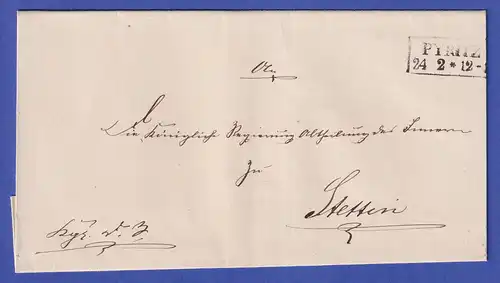 PYRITZ
24 2 * 12 -
An
Die Königliche Regierung Abtheilung des Innern
Zu
Stettin